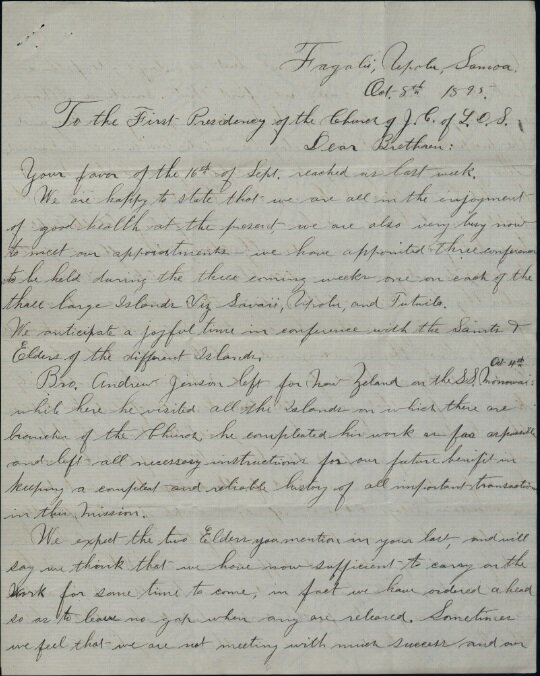 Fagalii, Upolu, Samoa.
Oct. 8th 1895.
To the First Presidency of the Church of J. C. of L. D. S.
Dear Brethren:
Your favor of the 16th of Sept. reached us last week.
We are happy to state that we are all in the enjoyment
of good health at the present we are also very busy now
to meet our appointments we have appointed three conferences
to be held during the three coming weeks one on each of the
three large Islands Viz Savaii, Upolu, and Tutuila.
We anticipate a joyful time in conference with the Saints &
Elders of the different Islands.
Oct 4th
Bro. Andrew Jenson left for New Zeland on the S.S. Monowai:
while here he visited all the Islands on which there are
branches of the Church he compleated his work as far as possible
and left all necessary instructions for our future benefit in
keeping a compleat and reliable history of all important transactions
in this Mission.
We expect the two Elders you mention in your last, and will
say we think that we have now sufficient to carry on the
work for some time to come, in fact we have ordered ahead
so as to leave no gap when any are released. Sometimes
we feel that we are not meeting with much success and our